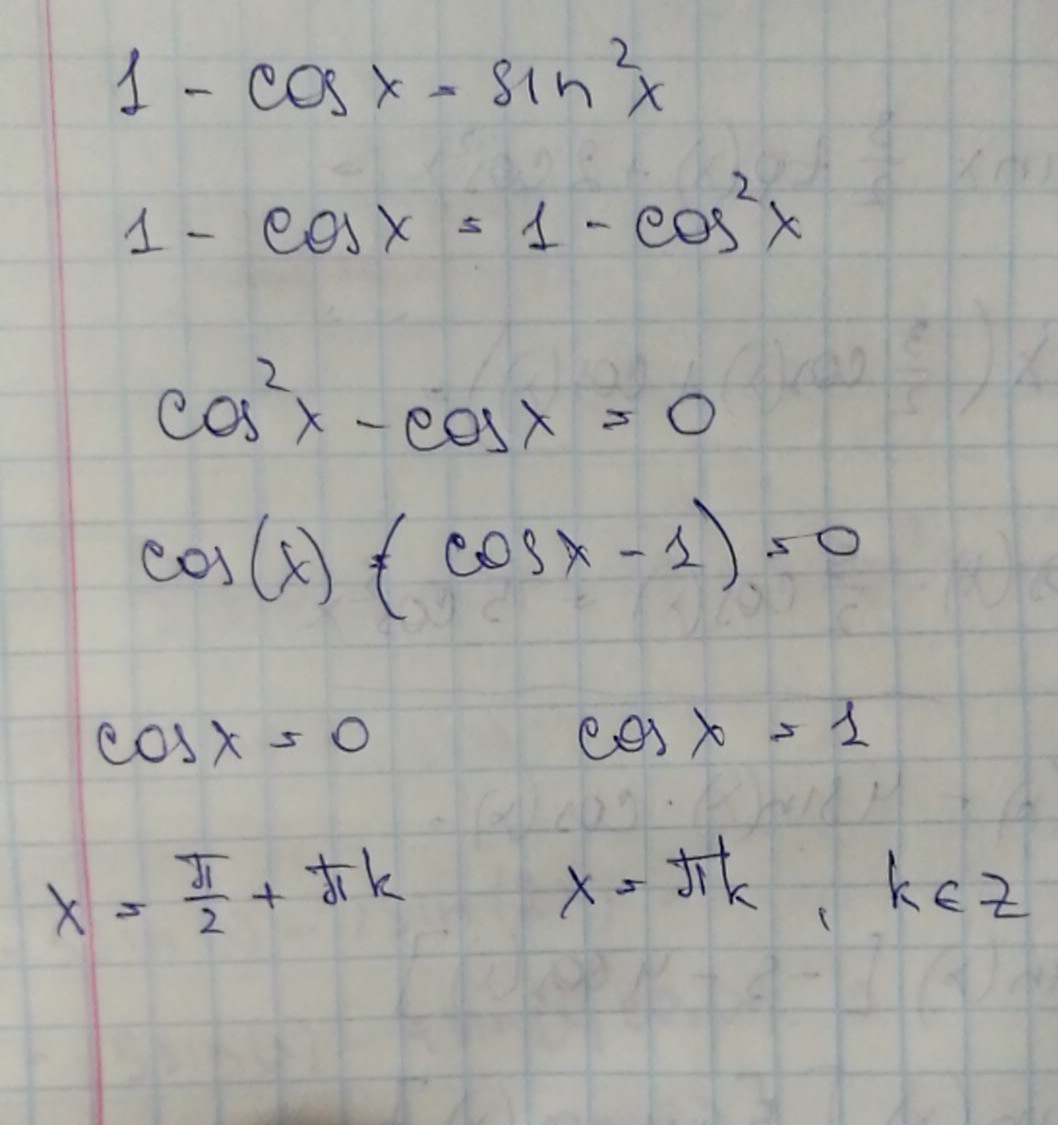 1 - cos x = sin²x
1 - cos x = 1 - cos²x
cos²x - cos x = 0
cos(x) · (cos x - 1) = 0
cos x = 0 cos x = 1
x = π/2 + πk x = πk , k ∈ Z